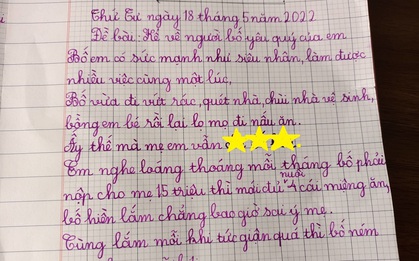 Thứ Tư ngày 18 tháng 5 năm 2022
Đề bài: Kể về người bố yêu quý của em
Bố em có sức mạnh như siêu nhân, làm được
nhiều việc cùng một lúc,
Bố vừa đi vứt rác, quét nhà, chùi nhà vệ sinh,
bồng em bé rồi lại lo mọ đi nấu ăn.
Ấy thế mà mẹ em vẫn
Em nghe loáng thoáng mỗi tháng bố phải
nộp cho mẹ 15 triệu thì mới đủ nuôi 4 cái miệng ăn,
bố hiền lắm chẳng bao giờ sai ý mẹ.
Cùng lắm mỗi khi tức giận quá thì bố ném